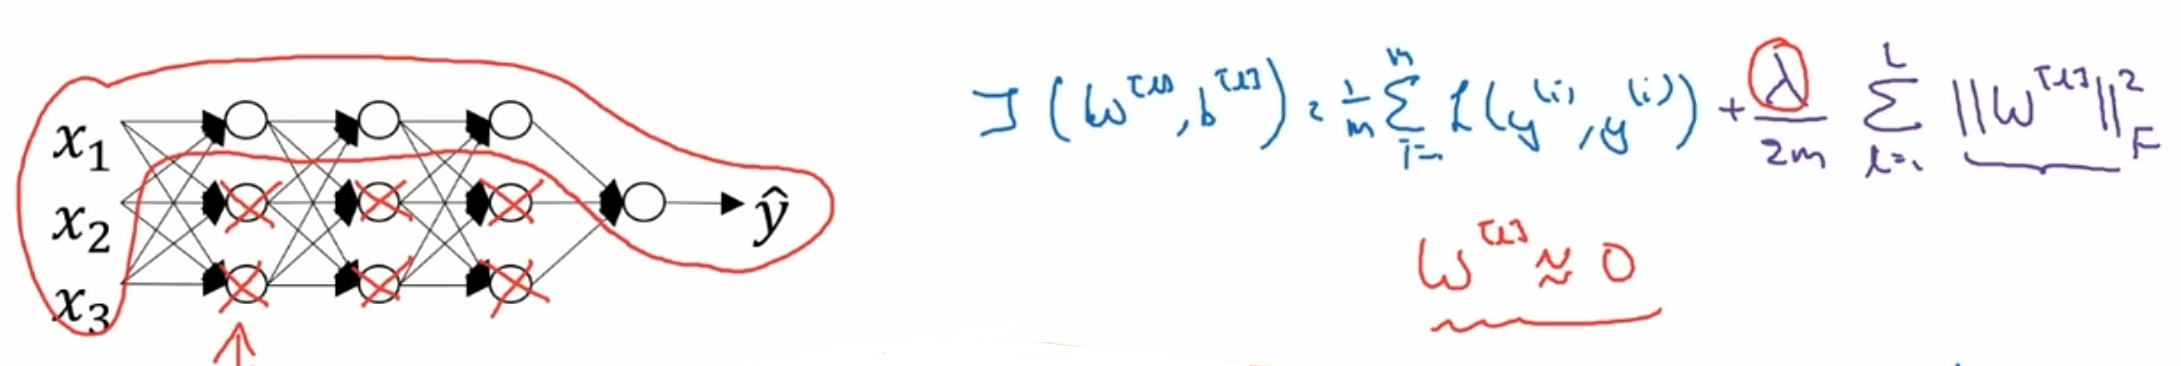 x₁
x₂
x₃
ŷ
J(W^[l], b^[l]) = 1/m Σ_{i=1}^{m} L(y^(i), y^(i)) + λ/2m Σ_{l=1}^{L} ||W^[l]||²_F
W^[l] ≈ 0